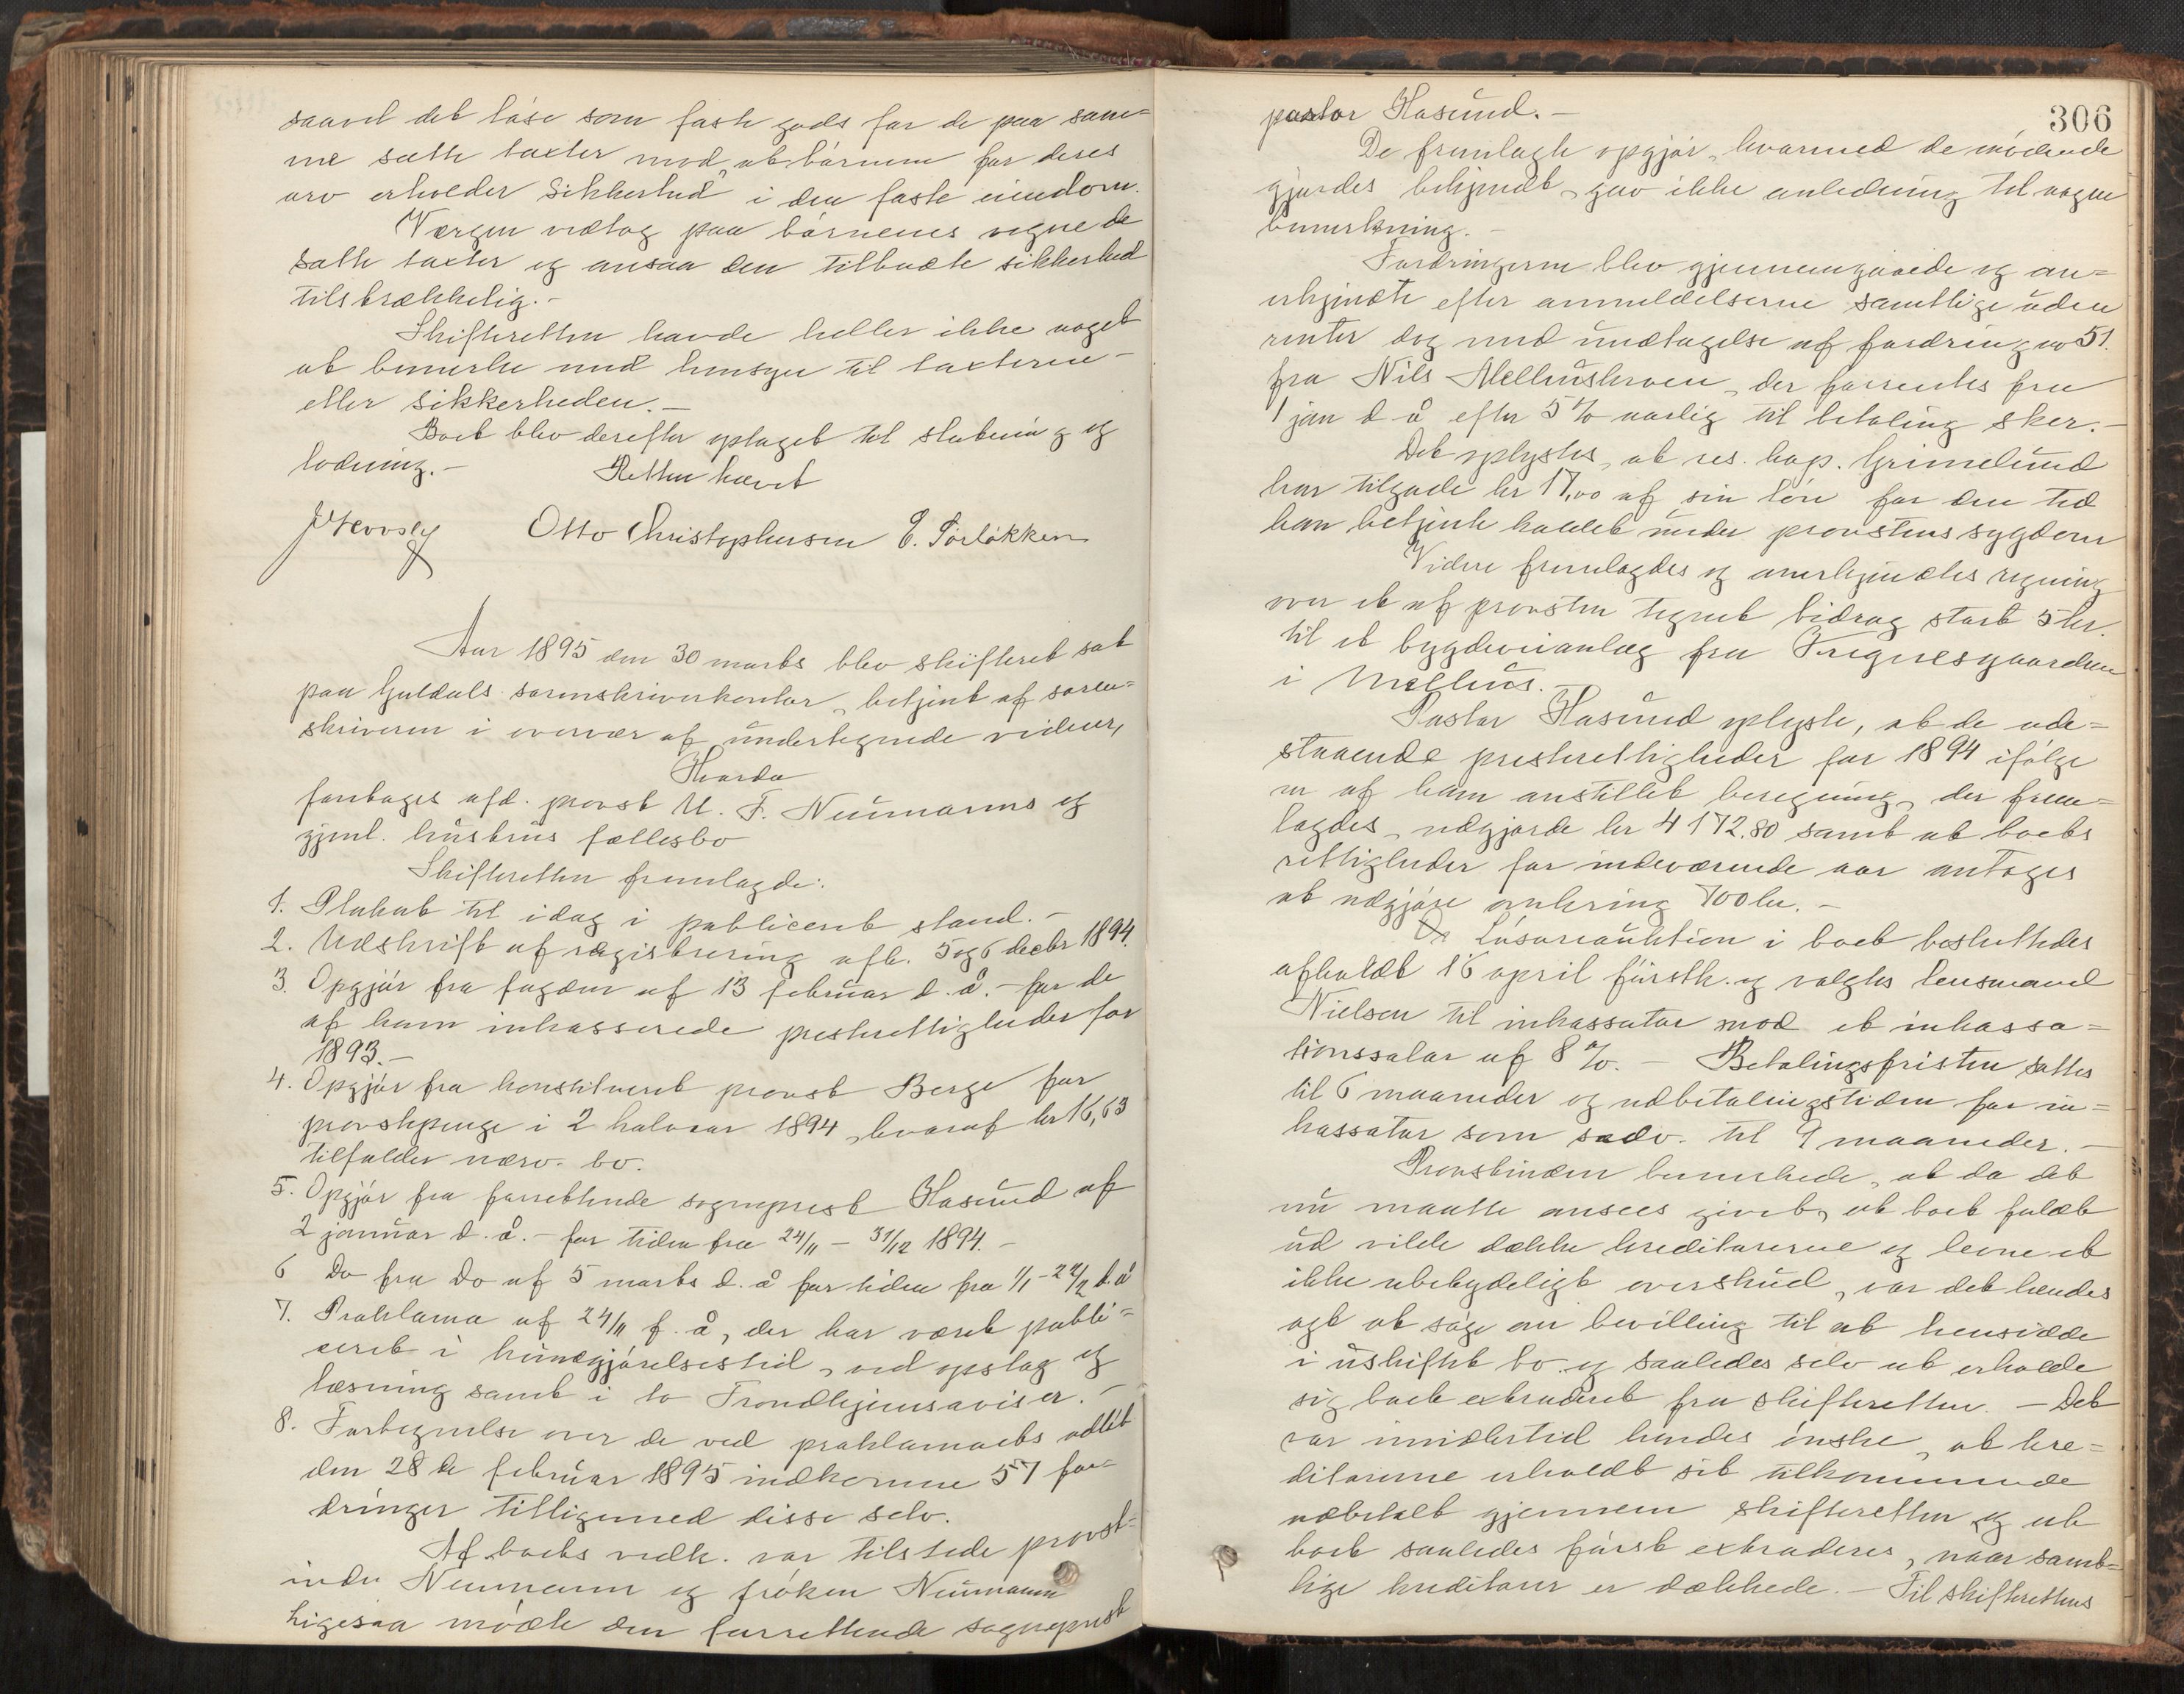 saavel det løse som faste gods for de paa sam=
me satte taxter mod, at børnene for deres
arv erholder sikkerhed i den faste eiendom.
Vergen vedtog paa børnenes vegne de
satte taxter og ansaa den tilbudte sikkerhed
tilstrækkelig.-
Skifteretten havde heller ikke noget
at bemerke med hensyn til taxterne
eller sikkerheden.-
Boet blev derefter optaget til slutning og
lodning.- Retten hævet
Otto Christophersen E. Pørløkken
Aar 1895 den 30 marts blev skifteret sat
paa Guldals sorenskriverkontor, betjent af soren=
skriveren i overvær af undertegnede vidner,
Hvorda
foretages afd. provst U. F. Neumanns og
gjenl. hustrus fællesbo
Skifteretten fremlagde:
1. Plakat til idag i publiceret stand.-
2. Udskrift af registrering afh. 5 og 6 decbr 1894.
3. Opgjør fra fogden af 13 februar d. å.- for de
af ham inkasserede presterettigheder for
1893.-
4. Opgjør fra konstitueret provst Berge for
provstepenge i 2 halvaar 1894, hvoraf kr 16,63
tilfalder nærv. bo.
5. Opgjør fra forrettende sogneprest Hasund af
2 januar d. å.- for tiden fra 24/11 - 31/12 1894.-
6 Do fra Do af 5 marts d. å for tiden fra 1/1 - 24/2 d. å
7. Proklama af 24/11 f. å, der har været publi=
ceret i kundgjørelsestid, ved opslag og
læsning samt i to Trondhjemsaviser.-
8. Fortegnelse over de ved proklamaets udløb
den 28de februar 1895 indkomne 57 for=
dringer tilligemed disse selv.
Af boets vedk. var tilstede provst=
inde Neumann og frøken Neumann
ligesaa mødte den forrettende sogneprest
306
pastor Hasund.-
De fremlagte opgjør, hvormed de mødende
gjordes bekjendt, gav ikke anledning til nogen
bemerkning.-
Fordringerne blev gjennemgaaede og an=
erkjendte efter anmeldelserne samtlige uden
renter dog med undtagelse af fordring no 51.
fra Nils Melhuskroen, der forrentes fra
1 jan d å efter 5 % aarlig til betaling sker.-
Det oplystes, at res. kap. Grimelund
har tilgode kr 17,00 af sin løn for den tid
han betjente kaldet under provstens sygdom
Videre fremlagdes og anerkjendtes regning
over et af provsten tegnet bidrag stort 5 kr.
til et bygdeveianlæg fra Fregnesgaarden
i Melhus.-
Pastor Hasund oplyste, at de ude=
staaende presterettigheder for 1894 ifølge
en af ham anstillet beregning, der frem=
lagdes, udgjorde kr 4172.80 samt at boets
rettigheder for indeværende aar antages
at udgjøre omkring 700 kr.-
Løsøreauktion i boet besluttedes
afholdt 16 april førstk. og valgtes lensmand
Nielsen til inkassator mod et inkassa=
tionssalær af 8 %.- Betalingsfristen sattes
til 6 maaneder og udbetalingstiden for in=
kassator som sedv. til 9 maaneder.-
Provstinden bemerkede, at da det
nu maatte ansees givet, at boet fuldt
ud vilde dække kreditorerne og levne et
ikke ubetydeligt overskud, var det hendes
agt at søge om bevilling til at hensidde
i uskiftet bo og saaledes selv at erholde
sig boet extraderet fra skifteretten.- Det
var imidlertid hendes ønske, at kre=
ditorerne erholdt sit tilkommende
udbetalt gjennem skifteretten og at
boet saaledes først extraderes, naar samt=
lige kreditorer er dækkede.- Til skifterettens